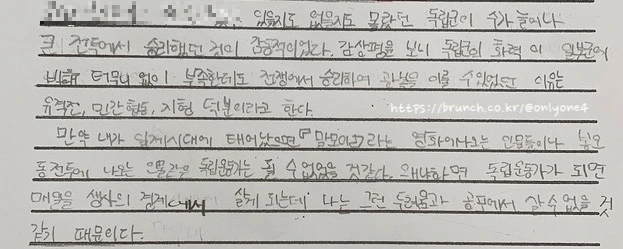 있을지도 없을지도 몰랐던 독립군이 수가 늘어나
큰 전투에서 승리했던 것이 감동적이었다. 감상평을 보니 독립군의 화력이 일본군에
비해 터무니 없이 부족한데도 전쟁에서 승리하여 광복을 이룰 수 있었던 이유는
유격전, 민간 협동, 지형 덕분이라고 한다.
https://brunch.co.kr/@onlyone4
만약 내가 일제시대에 태어났으면 『말모이』라는 영화에 나오는 인물들이나 봉오
동전투에 나오는 인물같은 독립운동가는 될 수 없었을 것같다. 왜냐하면 독립운동가가 되면
매일을 생사의 경계에서 살게 되는데 나는 그런 두려움과 공포에서 살 수 없을 것
같기 때문이다.